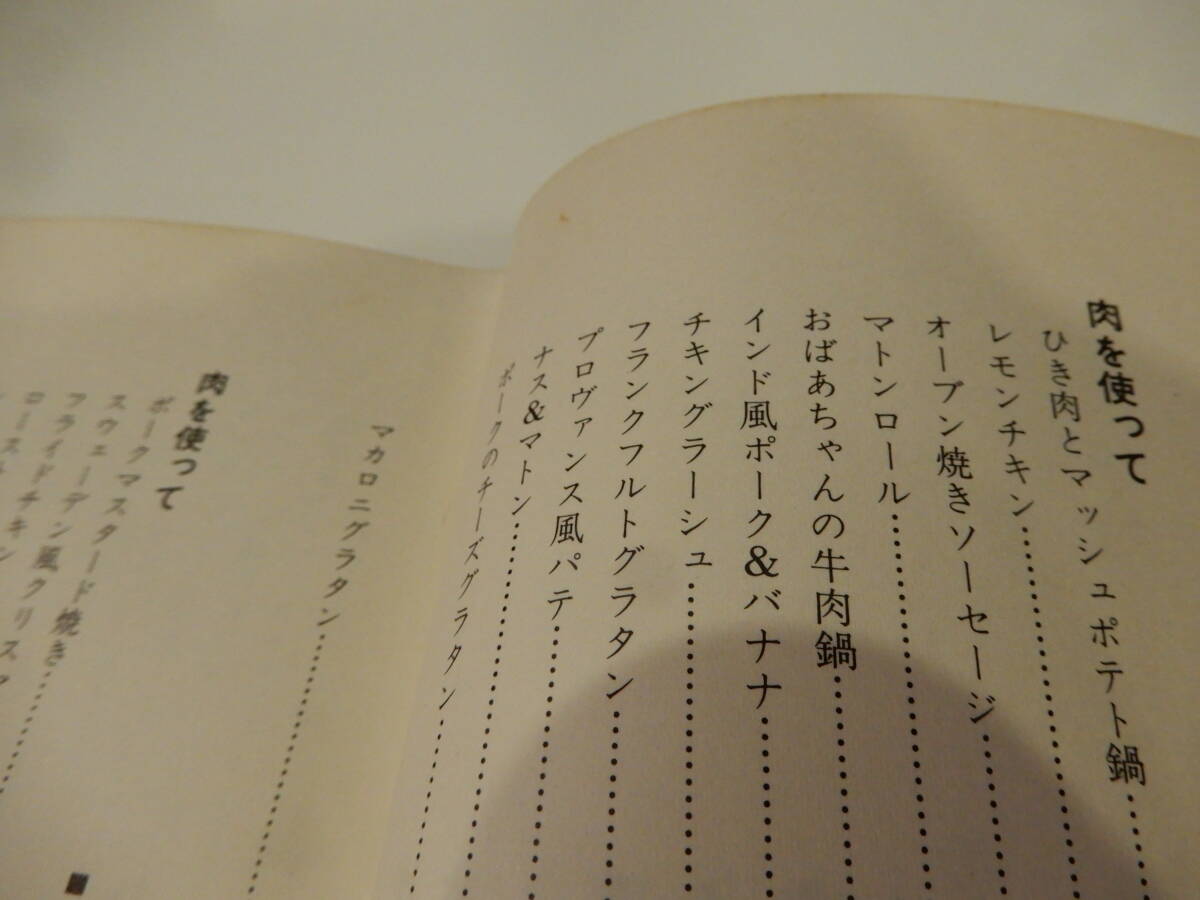 肉を使つて
ひき肉とマッシュポテト鍋
レモンチキン
オーブン焼きソーセージ
マトンロール
おばあちゃんの牛肉鍋
インド風ポーク&バナナ
チキングラーシュ
フランクフルトグラタン
プロヴァンス風パテ
ナス&マトン
ポークのチーズグラタン
マカロニグラタン
肉を使つて
ポークマスタード焼き
スウェーデン風クリスマ
フライドチキン